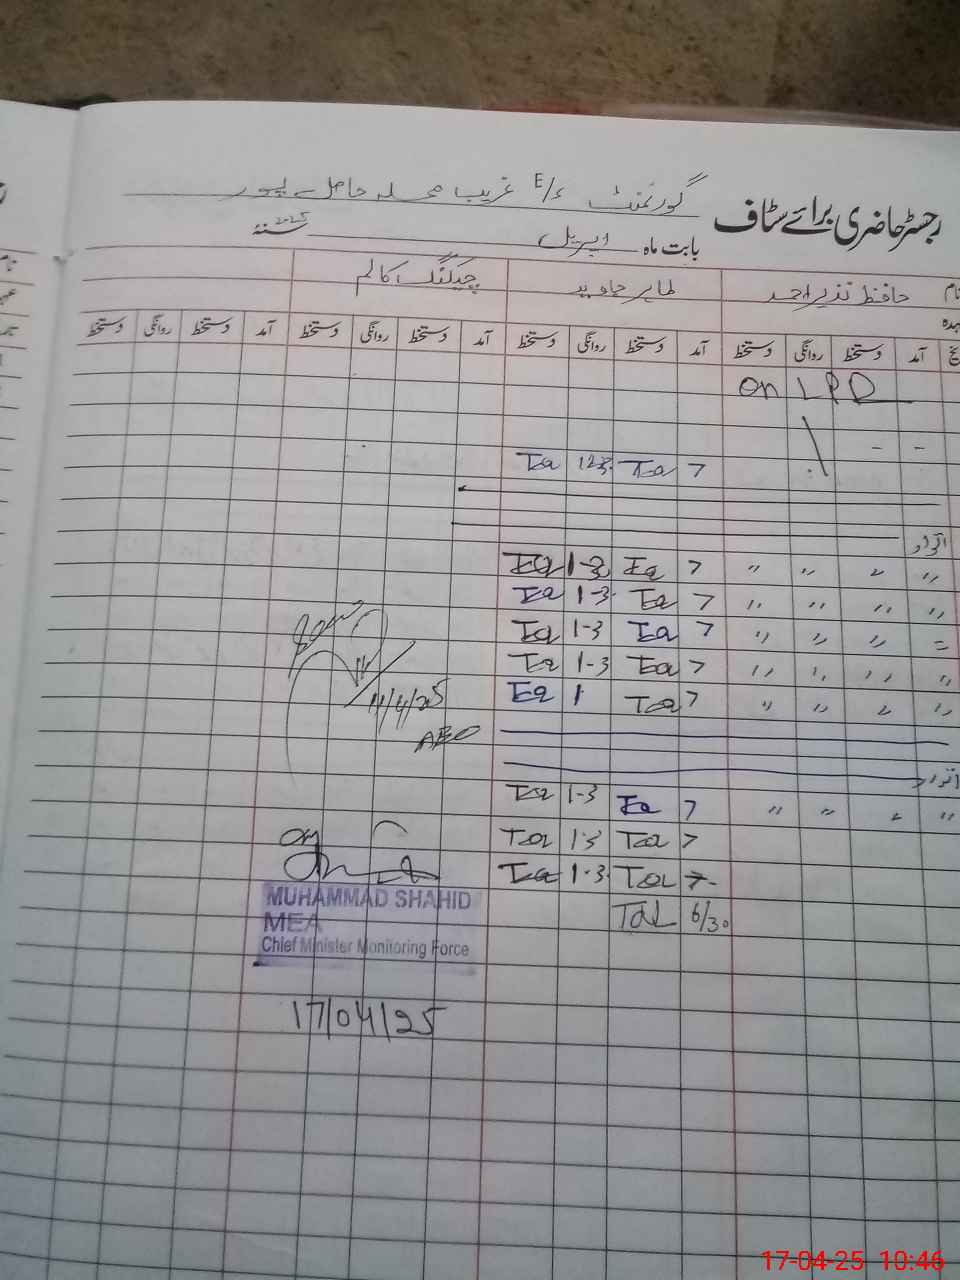 رجسٹر حاضری برائے سٹاف
گورنمنٹ E/s غریب محلہ حاصل پور
بابت ماہ اپریل سنۂ 2025
نام حافظ نذیر احمد طاہر جاوید چیکنگ کالم
آمد دستخط روانگی دستخط آمد دستخط روانگی دستخط آمد دستخط روانگی دستخط آمد دستخط روانگی دستخط
on LPR
7 12-3
اتوار
〃 〃 〃 〃 7 1-3
〃 〃 〃 〃 7 1-3
= 〃 〃 〃 7 1-3
〃 〃 〃 〃 7 1-3
〃 〃 〃 〃 7 1
11/4/25
AEO
اتوار
〃 〃 〃 〃 7 1-3
7 1-3
7 1-3
6/30
MUHAMMAD SHAHID
MEA
Chief Minister Monitoring Force
17/04/25
17-04-25 10:46